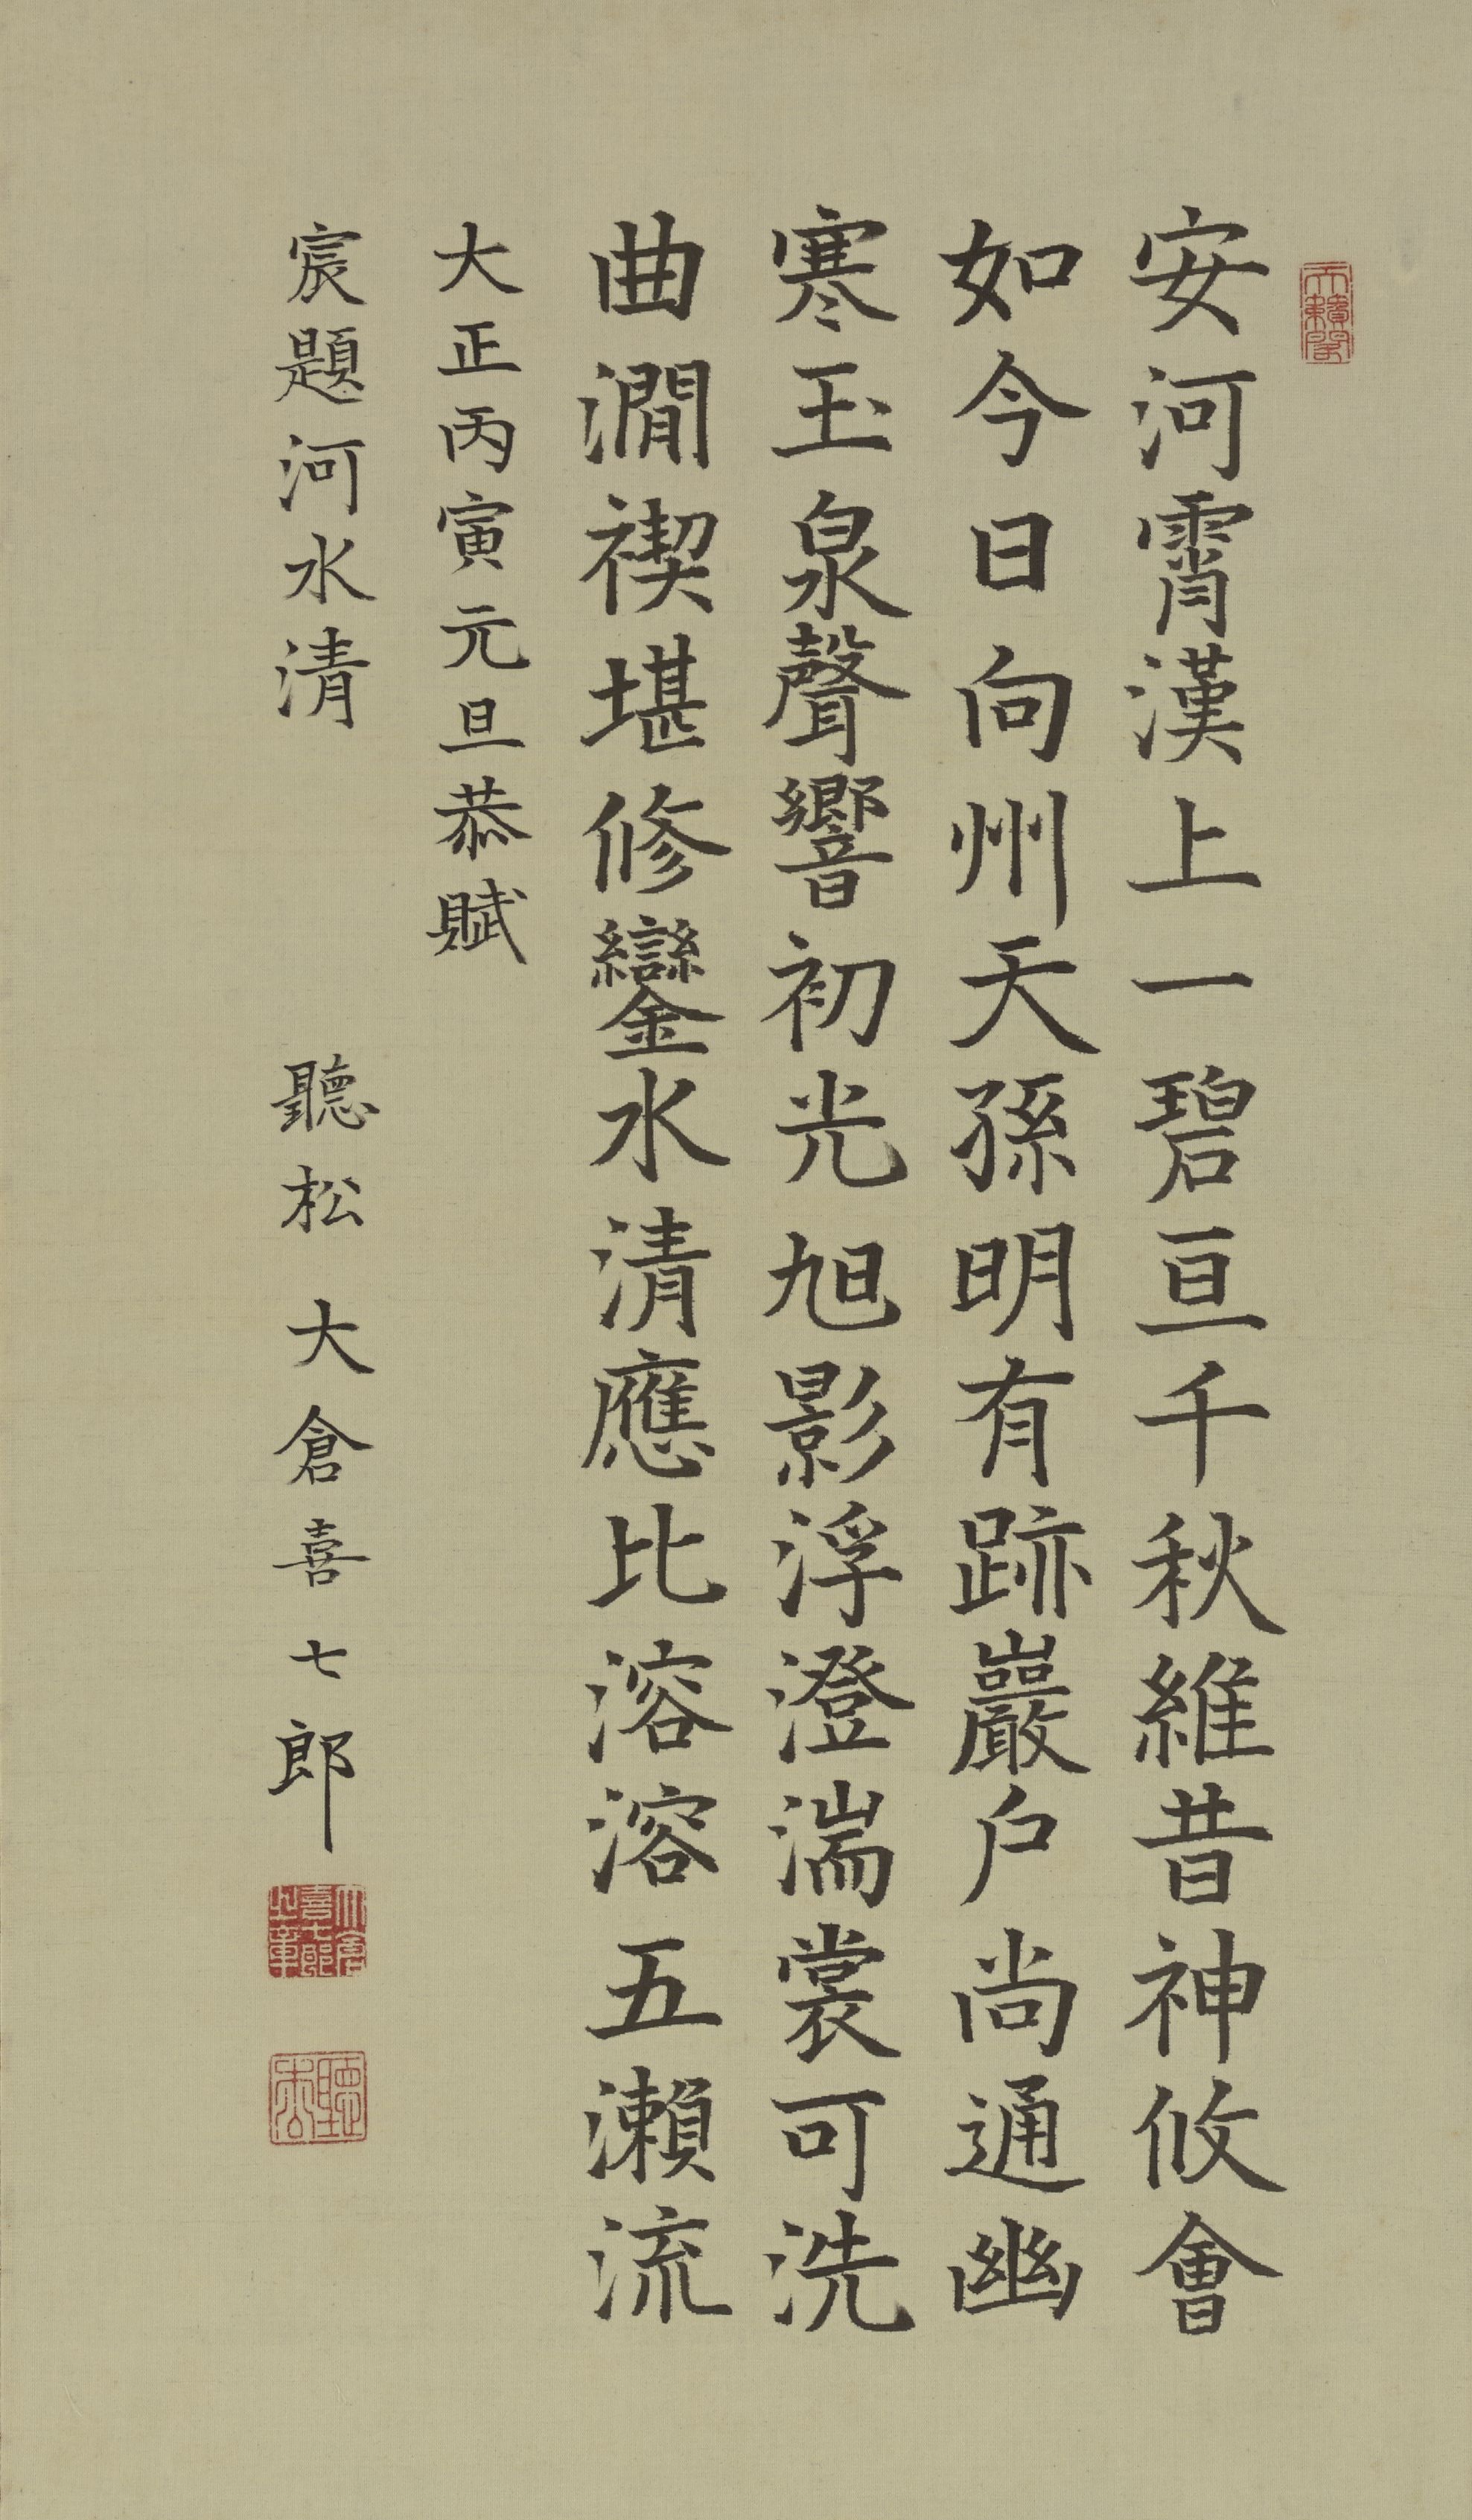 安河霄漢上一碧亘千秋維昔神攸會
如今日向州天孫明有跡巖戶尚通幽
寒玉泉聲響初光旭影浮澄湍裳可洗
曲澗禊堪修鑾水清應比溶溶五瀨流
大正丙寅元旦恭賦
宸題河水清 聽松 大倉喜七郎
大倉喜七郎之章
聽松